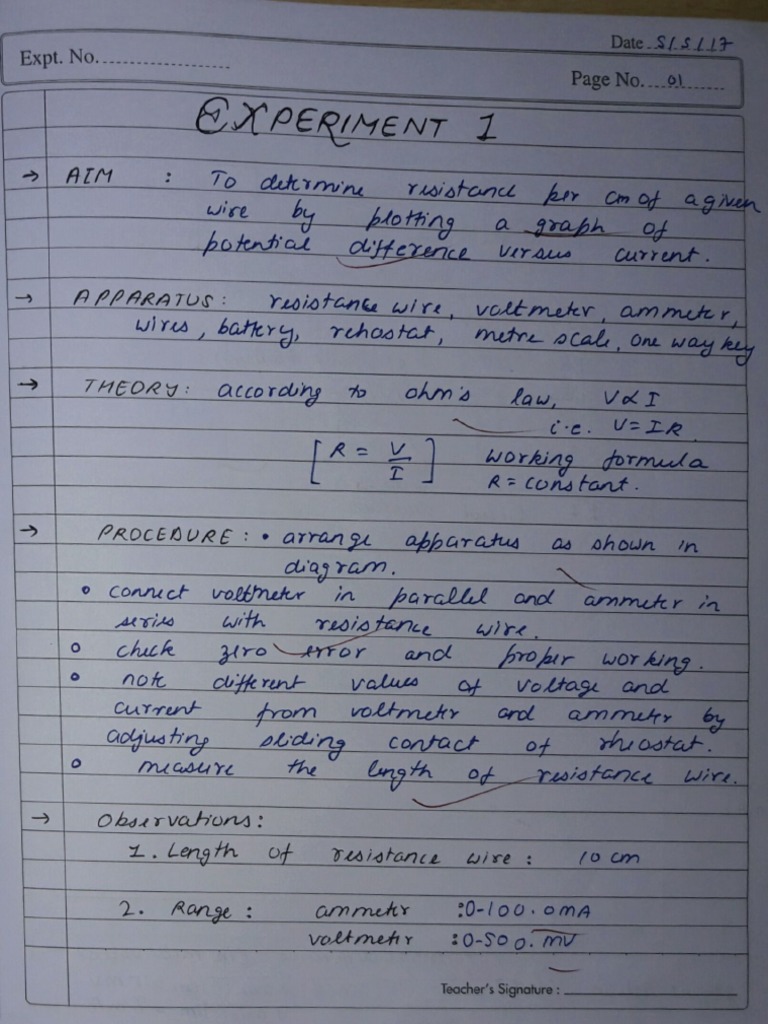 Date 5/5/17
Expt. No.
Page No. 01
EXPERIMENT 1
→ AIM : To determine resistance per cm of a given
wire by plotting a graph of
potential difference versus current.
→ APPARATUS: resistance wire, voltmeter, ammeter,
wires, battery, rehostat, metre scale, one way key
→ THEORY: according to ohm's law, V ∝ I
i.e. V = IR
[R = V/I] working formula
R = constant.
→ PROCEDURE: • arrange apparatus as shown in
diagram.
• connect voltmeter in parallel and ammeter in
series with resistance wire.
• check zero error and proper working.
• note different values of voltage and
current from voltmeter and ammeter by
adjusting sliding contact of rheostat.
• measure the length of resistance wire.
→ Observations:
1. Length of resistance wire: 10 cm
2. Range: ammeter :0-100.0mA
voltmeter :0-500.mV
Teacher's Signature :